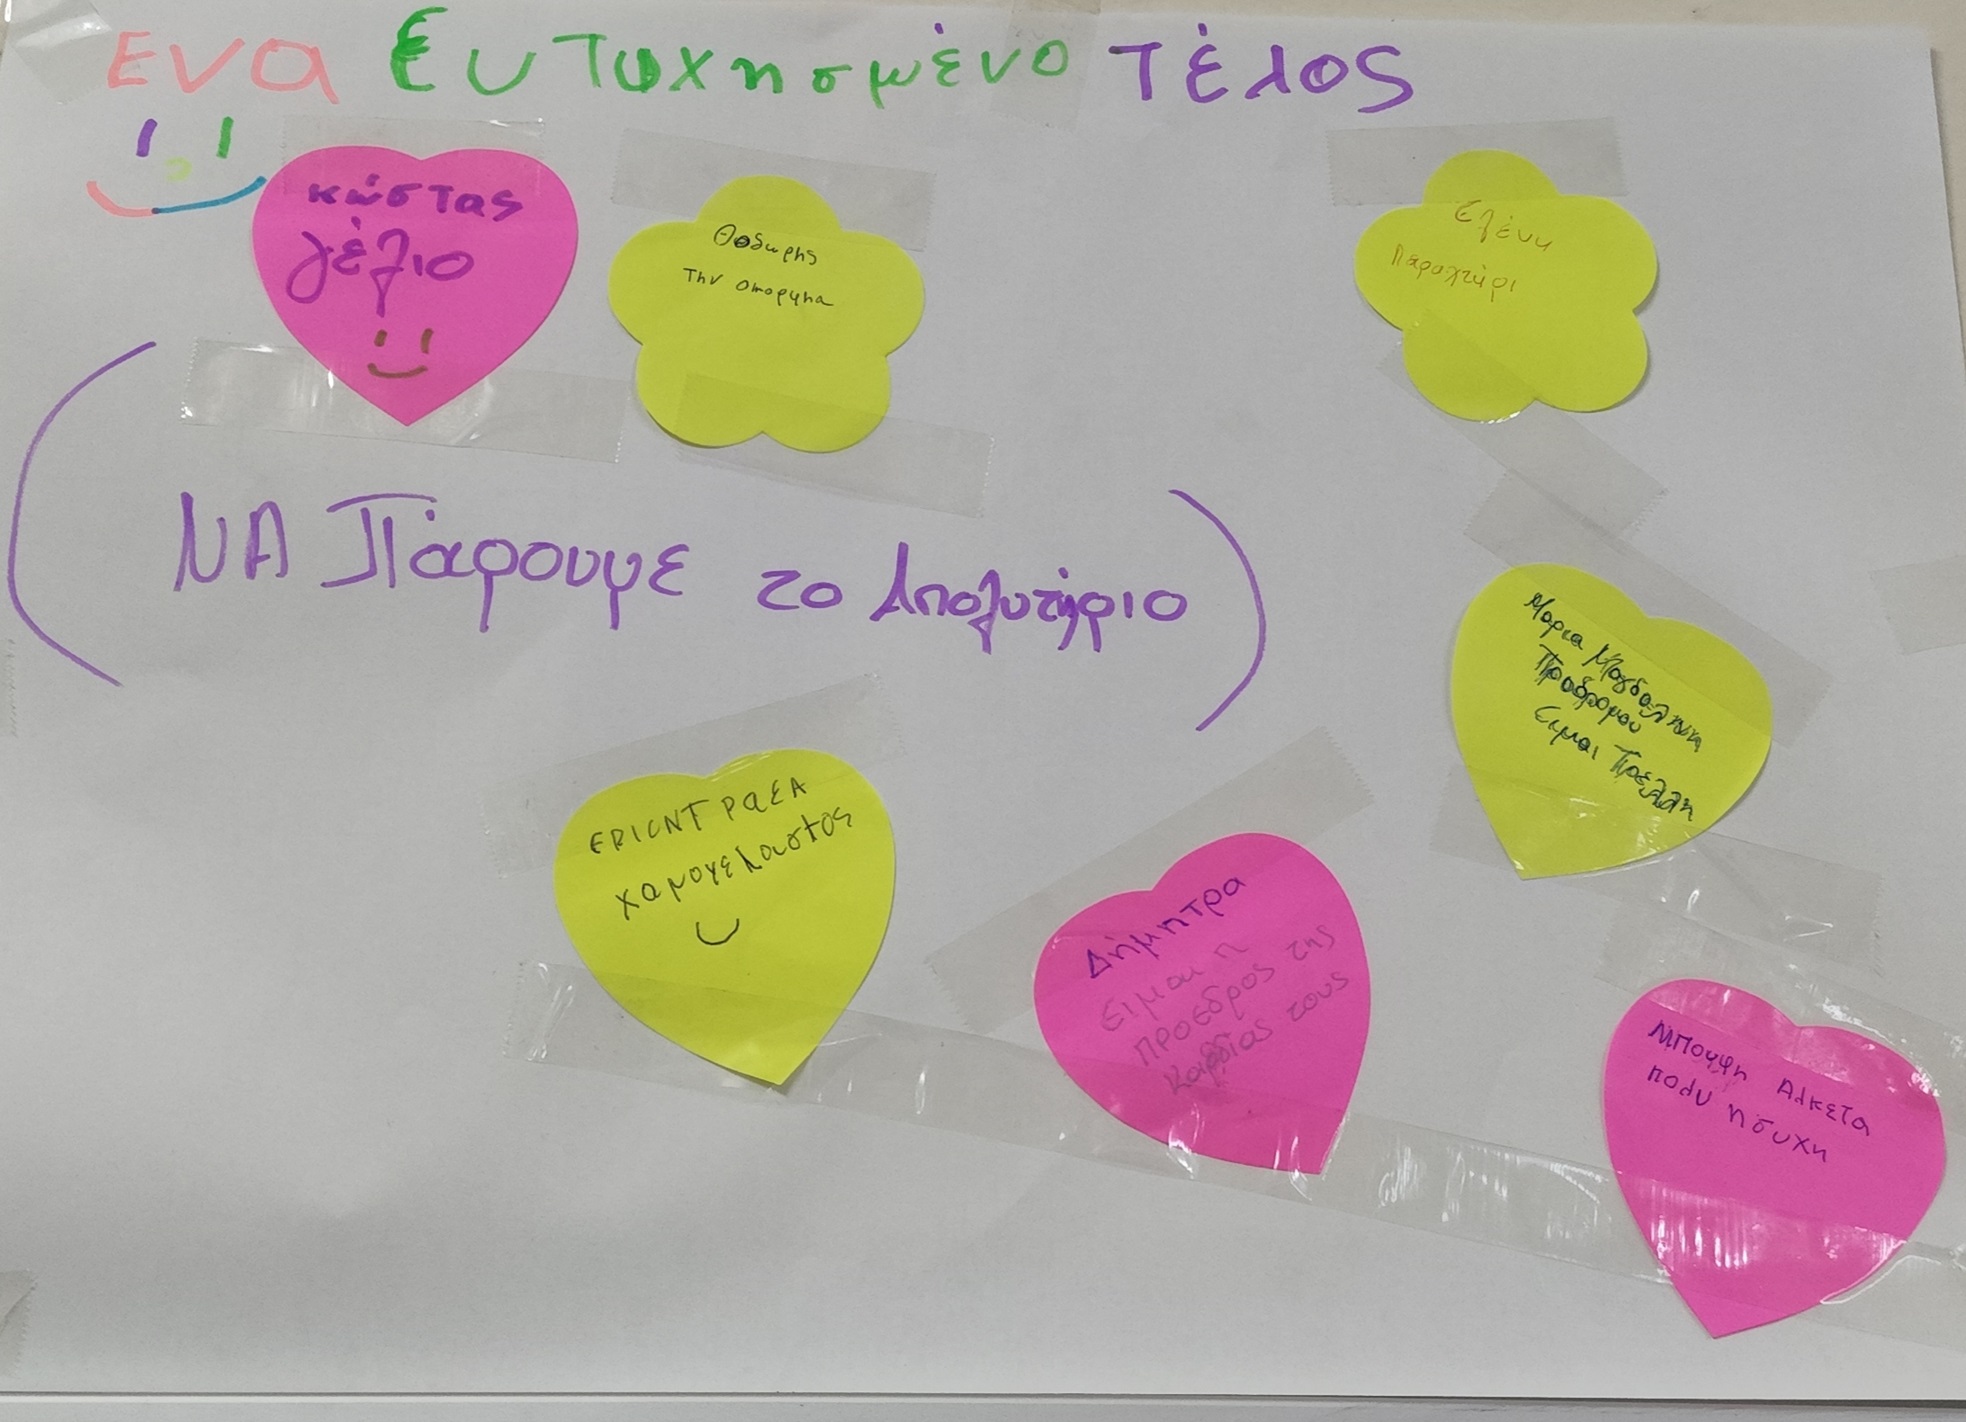 Ενα Ευτυχησμένο τέλος
κώστας
γέλιο
Θοδωρης
Την
Ελένη
ΝΑ Πάρουμε το Απολυτήριο
Μαρια Μαγδαληνη
Προδρομού
Ειμαι Τρελλη
χαμογελαστος
Δήμητρα
Ειμαι η
προεδρος της
καρδιας τους
Μπουφη Αλκετα
πολυ ησυχη